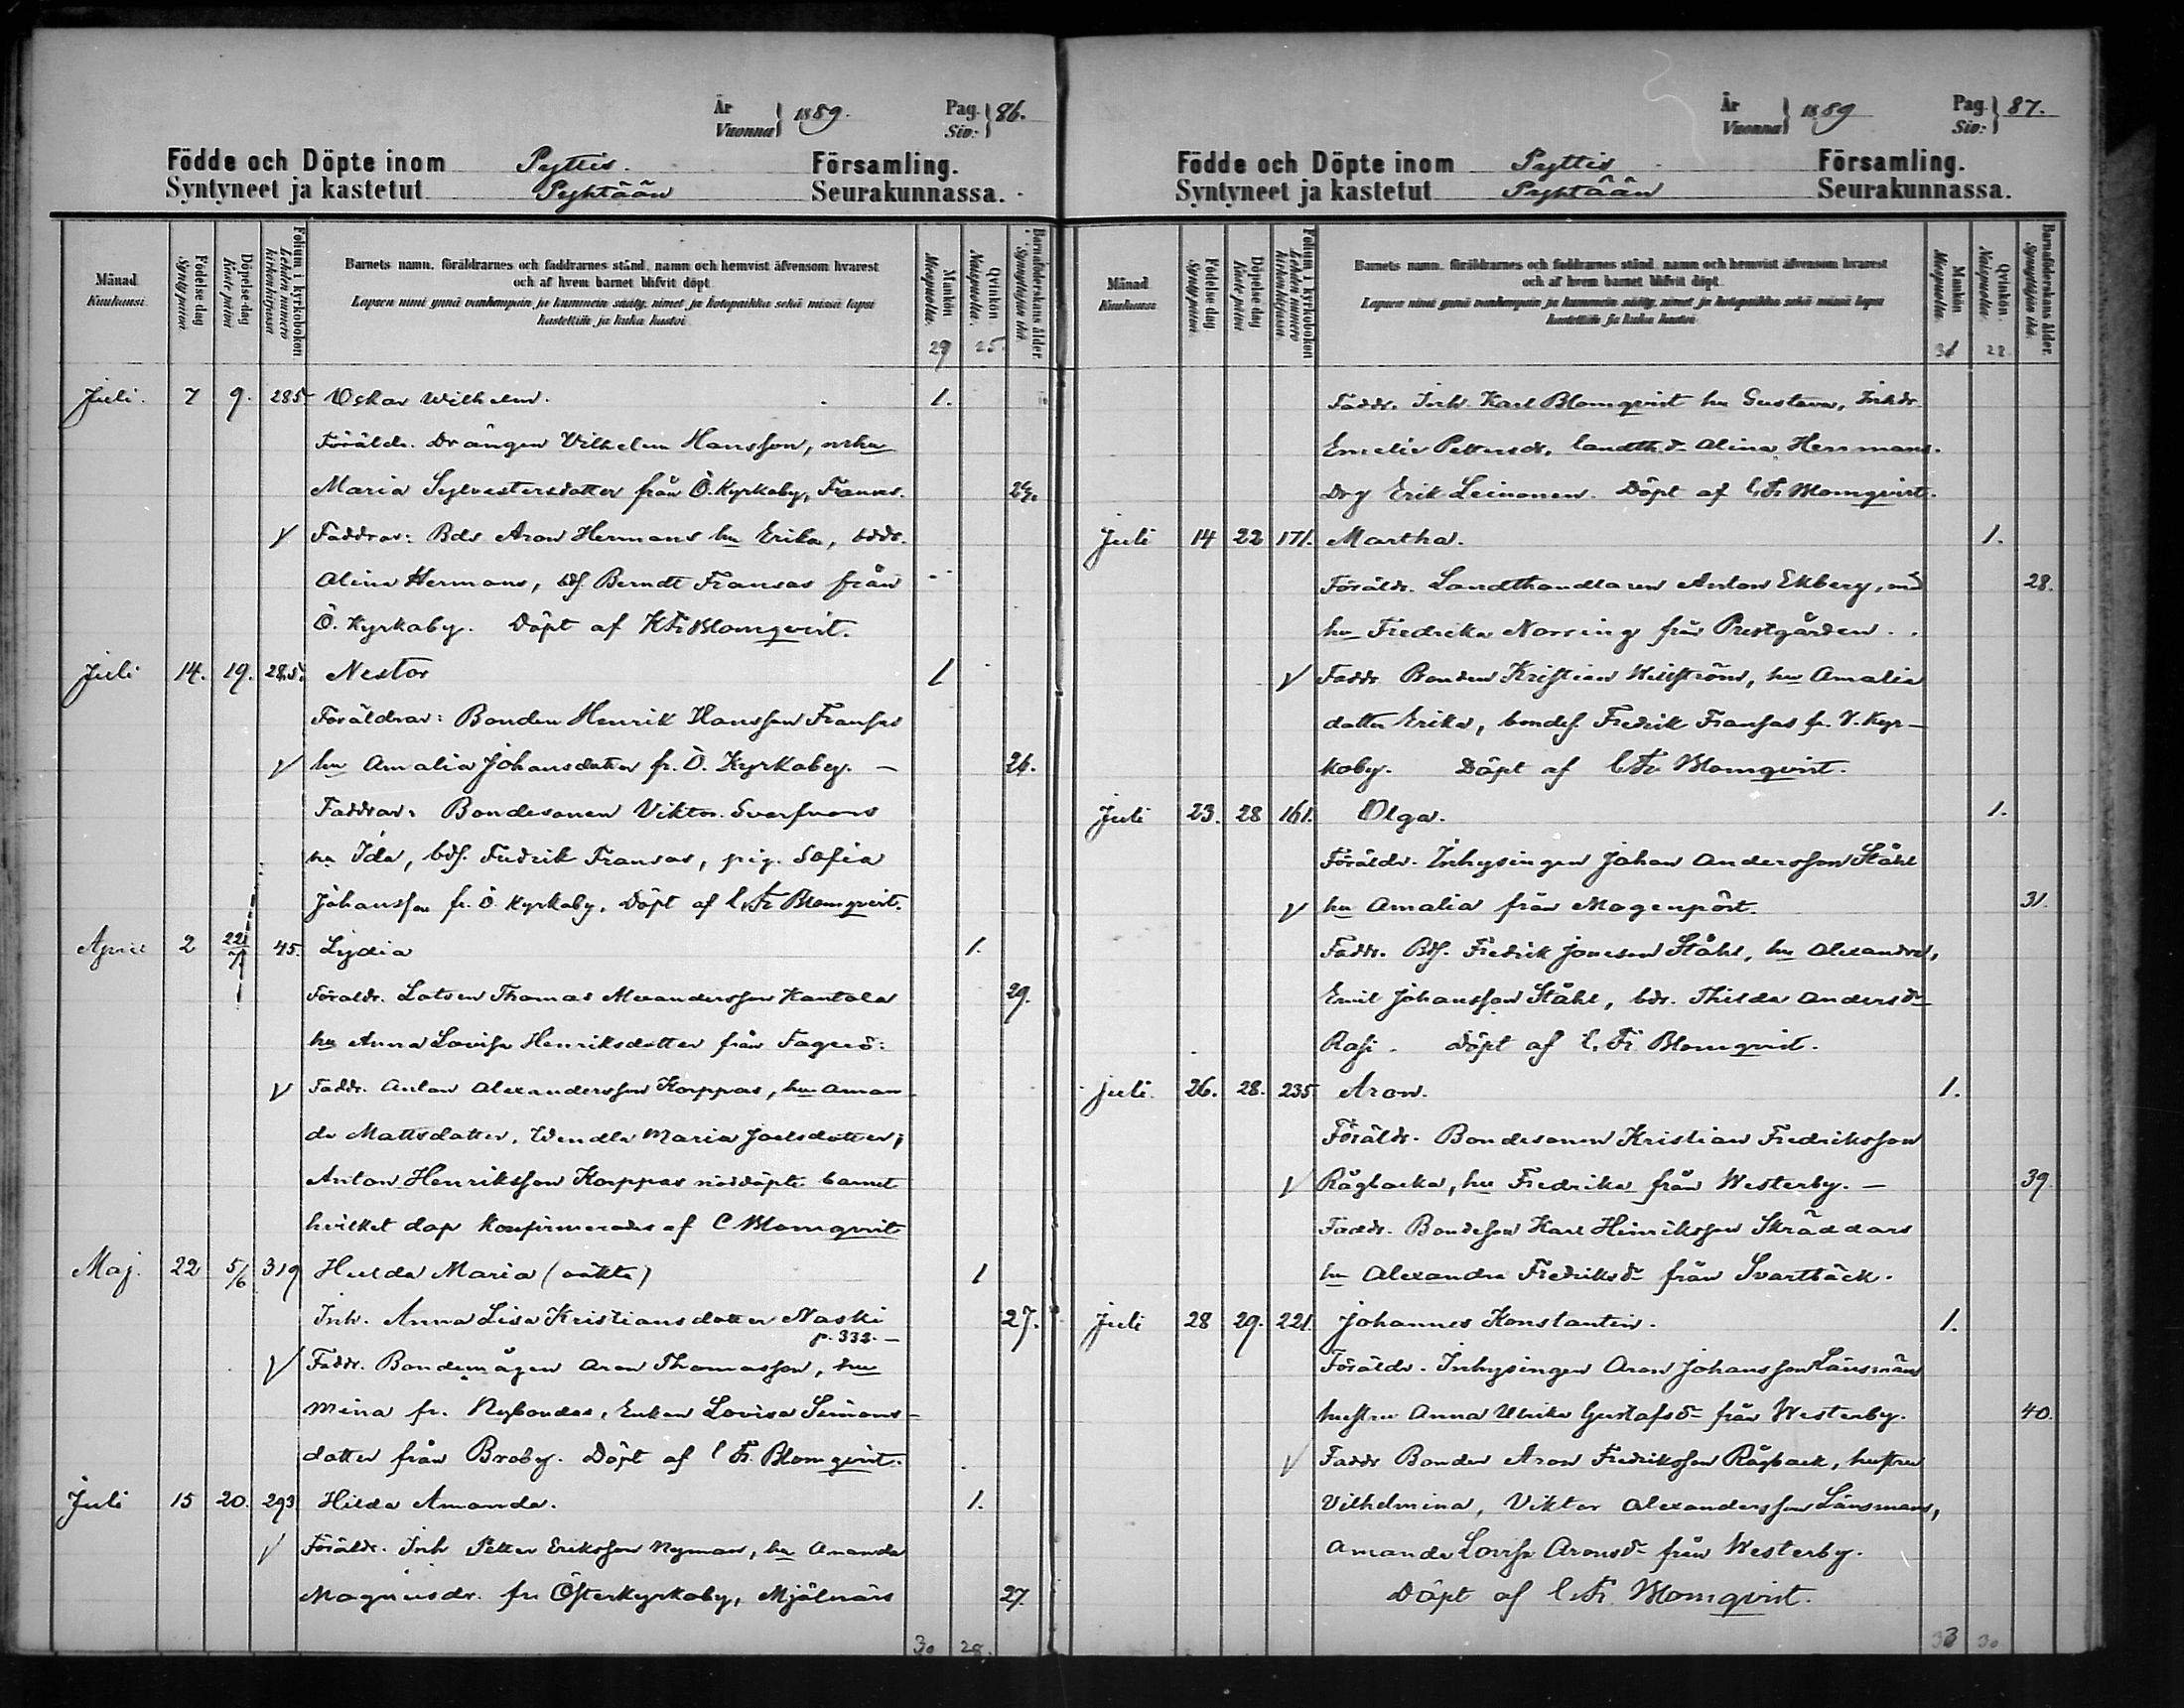 År
Vuonna } 1889.
Pag.
Siv: } 86.
Födde och Döpte inom Pyttis. Församling.
Syntyneet ja kastetut Pyhtään Seurakunnassa.
Månad
Kuukausi
Födelse dag
Synty päivä
Döpelse dag
Kaste päivä
Folium i kyrkoboken
Lehden numero kirkonkirjassa
Barnets namn, föräldrarnes och faddrarnes stånd, namn och hemvist äfvensom hvarest
och af hvem barnet blifvit döpt.
Lapsen nimi ynnä vanhempain ja kummein sääty, nimet ja kotopaikka sekä missä lapsi
kastettiin ja kuka kastoi.
Mankön
Miespuolia.
Qvinkön.
Naispuolia.
Barnaföderskans ålder.
Synnyttäjän ikä.
29 25.
Juli. 7 9. 285 Oskar Wilhelm. 1.
Föräldr. Drängen Vilhelm Hansson, o hu
Maria Sylvestersdotter från Ö. Kyrkoby, Fransas.
Faddrar: Bds Aron Hermans hu Erika, bdds.
Alina Hermans, bds. Berndt Fransas från
Ö. Kyrkoby. Döpt af K Fr Blomqvist.
Juli 14. 19. 285. Nestor 1
Föräldrar: Bonden Henrik Hansson Fransas
hu Amalia Johansdotter fr. Ö. Kyrkoby. — 26.
Faddrar: Bondesonen Viktor Svarfvars
hu Ida, bds. Fredrik Fransas, pig. Sofia
Johansson fr. Ö. Kyrkoby, Döpt af C. Fr Blomqvist.
April 2 22/7 45. Lydia 1.
Föraldr. Lotsen Thomas Alexandersson Kantola 29.
hu Anna Lovisa Henriksdotter från Fagerö.
Faddr. Anton Alexandersson Korppas, hu Aman
da Mattsdotter, Wendla Maria Joelsdotter,
Anton Henriksson Korppas nöddöpte barnet
hvilket dop konfirmerades af C Blomqvist
Maj. 22 5/6 319 Hulda Maria (oäkta) 1
Inh. Anna Lisa Kristiansdotter Naski 27.
p. 332. —
Faddr. Bondemågen Aron Thomasson, hu
Mina fr. Nybondas, Enkan Lovisa Simons-
dotter från Broby. Döpt af C Fr. Blomqvist.
Juli 15 20. 293 Hilda Amanda. 1.
Föräldr. Inh Petter Eriksson Nyman, hu Amanda
Magnusdr. fr Österkyrkoby, Mjölnärs 27
30 28.
År
Vuonna } 1889
Pag.
Siv: } 87.
Födde och Döpte inom Pyttis Församling.
Syntyneet ja kastetut Pyhtään Seurakunnassa.
Månad
Kuukausi
Födelse dag
Synty päivä
Döpelse dag
Kaste päivä
Folium i kyrkoboken
Lehden numero kirkonkirjassa
Barnets namn, föräldrarnes och faddrarnes stånd, namn och hemvist äfvensom hvarest
och af hvem barnet blifvit döpt.
Lapsen nimi ynnä vanhempain ja kummein sääty, nimet ja kotopaikka sekä missä lapsi
kastettiin ja kuka kastoi.
Mankön
Miespuolia.
Qvinkön.
Naispuolia.
Barnaföderskans ålder.
Synnyttäjän ikä.
31 28
Faddr. Inh. Karl Blomqvist hu Gustava, Inhdr.
Emelie Pettersdr. landth.dr Alina Hermans.
Drg Erik Leinonen. Döpt af C. Fr Blomqvist.
Juli 14 22 171. Martha. 1.
Föräldr. Landthandlaren Anton Ekberg, 28.
hu Fredrika Norring från Prestgården.
Faddr. Bonden Kristian Willström, hu Amalia
dotter Erika, bondes. Fredrik Fransas fr. V. Kyr-
koby. Döpt af C. Fr Blomqvist.
Juli 23. 28 161. Olga. 1.
Föräldr. Inhysingen Johan Andersson Ståhl
hu Amalia från Mogenpört. 31.
Faddr. Bds. Fredrik Jonesson Ståhl, hu Alexandra,
Emil Johansson Ståhl, bdr. Thilda Andersdr
Rasi. Döpt af C. Fr Blomqvist.
Juli. 26. 28. 235 Aron. 1.
Föräldr. Bondesonen Kristian Fredriksson
Rågbacka, hu Fredrika från Westerby. — 39.
Faddr. Bondeson Karl Hinriksson Skräddars
hu Alexandra Fredriksdr från Svartbäck.
Juli 28 29. 221. Johannes Konstantin. 1.
Föräldr. Inhysingen Aron Johansson Länsmans
hustru Anna Ulrika Gustafsdr från Westerby. 40.
Faddr Bonden Aron Fredriksson Rågback, hustru
Vilhelmina, Viktor Alexandersson Länsmans,
Amanda Lovisa Aronsdr från Westerby.
Döpt af C. Fr. Blomqvist.
33 30